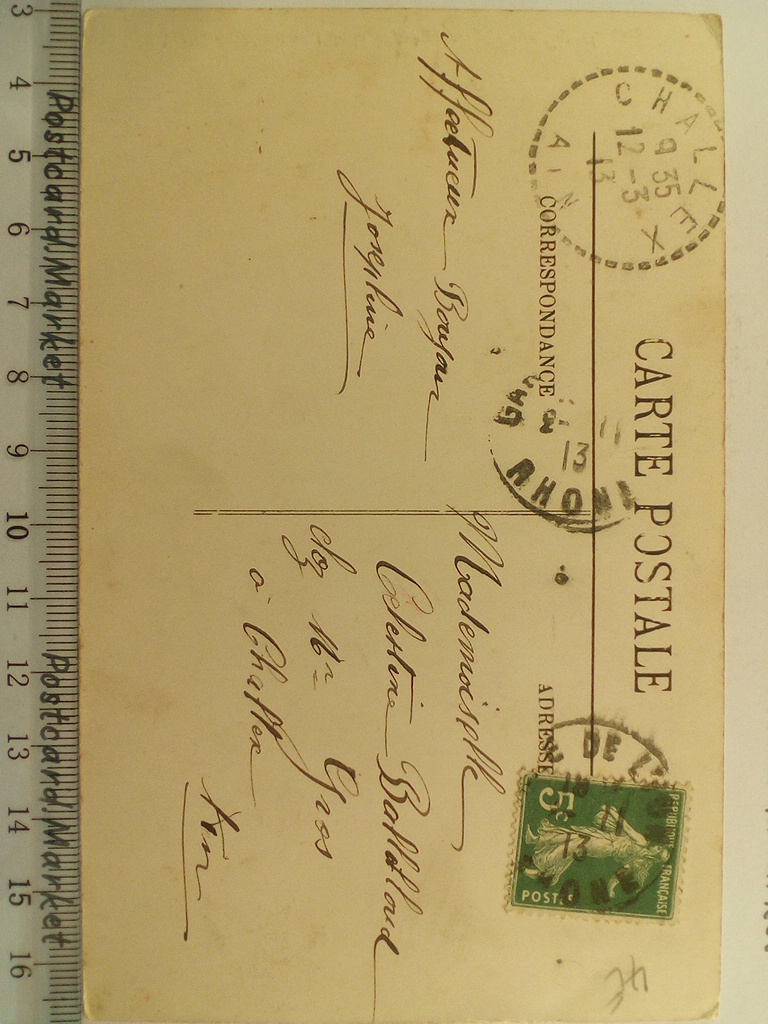 CARTE POSTALE
CORRESPONDANCE
ADRESSE
Affectueux Bonjour
Joséphine
Mademoiselle
chez Mr Gros
à Challex
Ain
CHALLEX
9 35
12-3
13
AIN
13
RHONE
DE L
11
13
RHONE
REPUBLIQUE FRANÇAISE
5c
POSTES
Postcard Market
Postcard Market
3 4 5 6 7 8 9 10 11 12 13 14 15 16